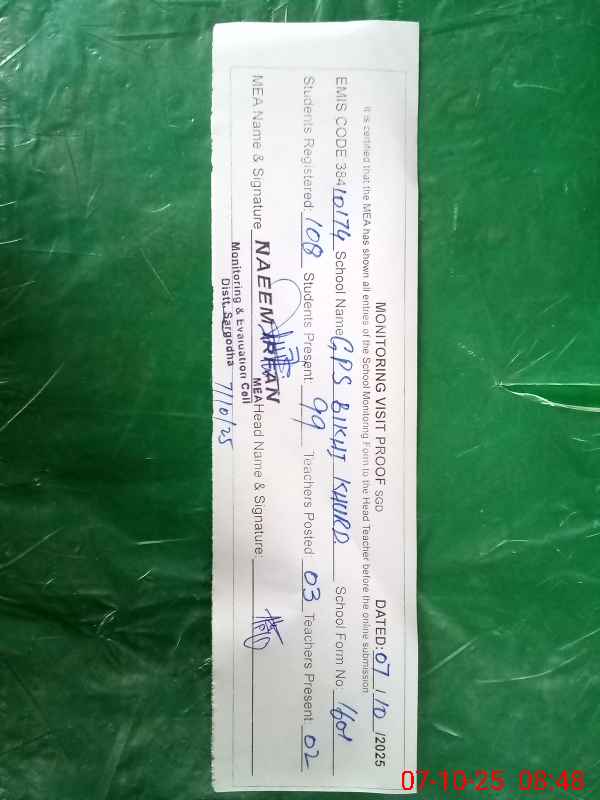 MONITORING VISIT PROOF SGD DATED: 07/10/2025
It is certified that the MEA has shown all entries of the School Monitoring Form to the Head Teacher before the online submission
EMIS CODE 38410174 School Name GPS BIKHI KHURD School Form No: 1601
Students Registered: 108 Students Present: 99 Teachers Posted: 03 Teachers Present 02
MEA Name & Signature NAEEM IRFAN Head Name & Signature:
MEA
Monitoring & Evaluation Cell
Distt. Sargodha 7/10/25
07-10-25 08:48